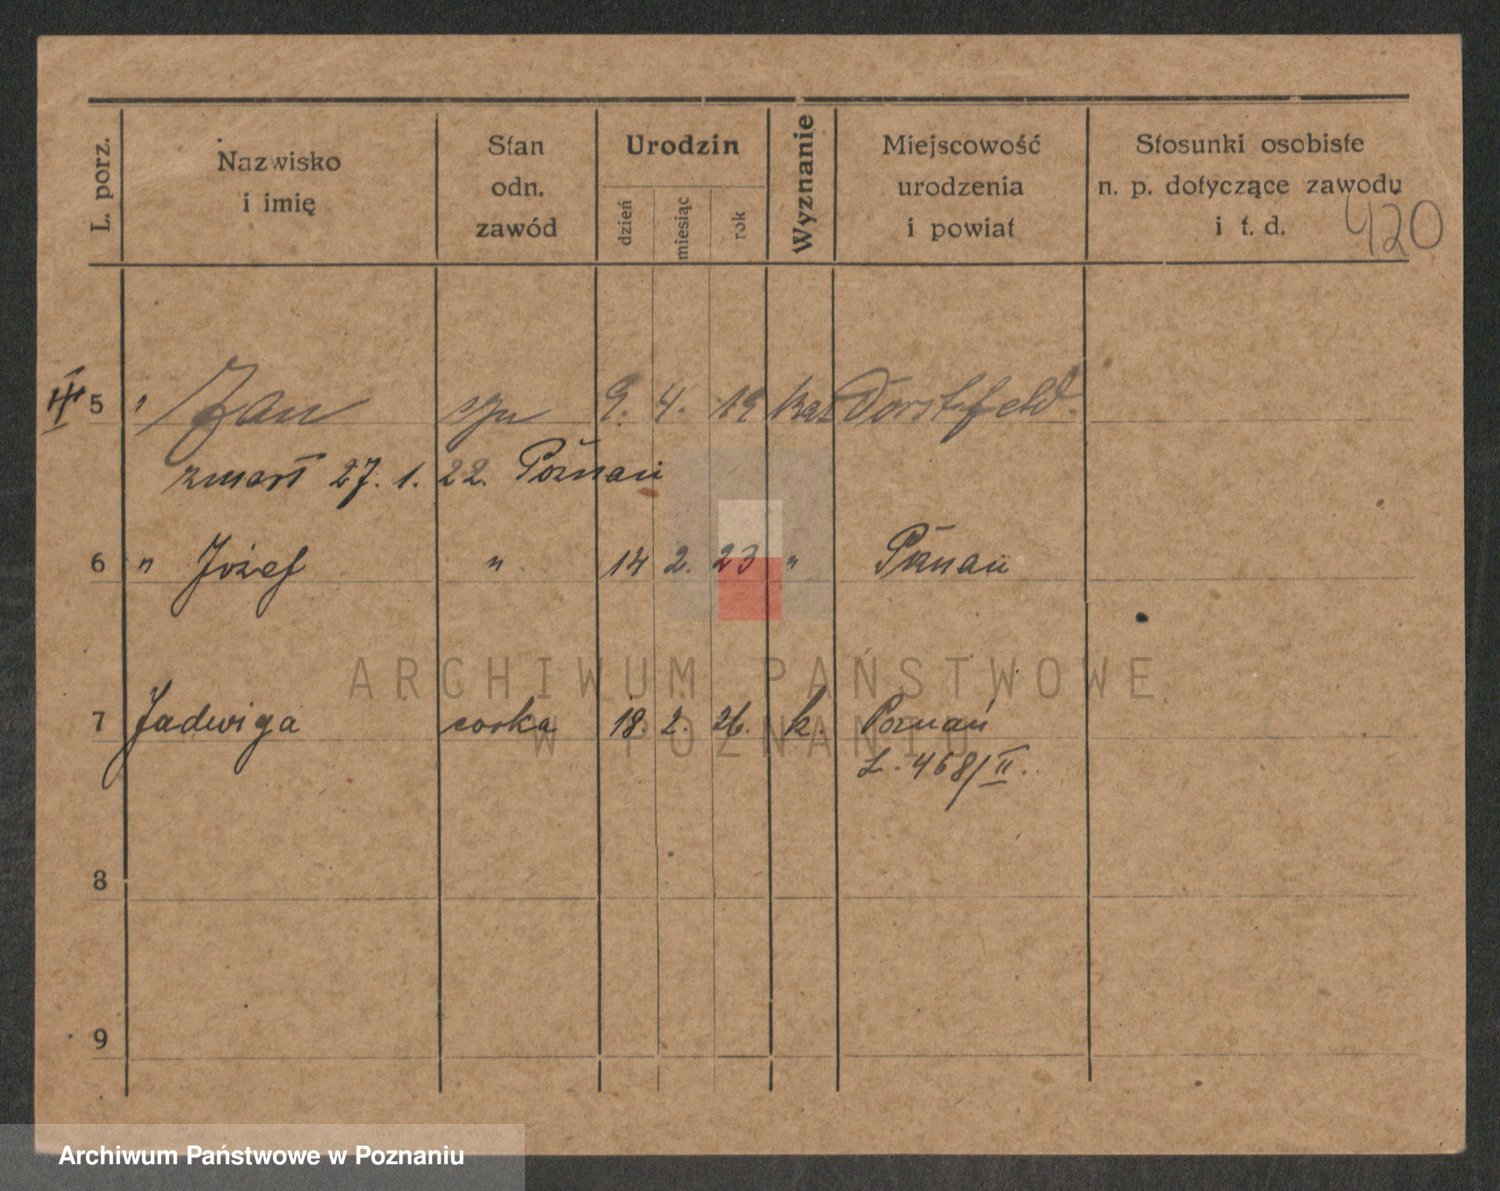 L. porz.
Nazwisko
i imię
Stan
odn.
zawód
Urodzin
dzień
miesiąc
rok
Wyznanie
Miejscowość
urodzenia
i powiat
Stosunki osobiste
n. p. dotyczące zawodu
i t. d.
420
5 " Jan syn 9. 4. 19 kat Dorstfeld.
zmarł 27. 1. 22. Poznań
6 " Józef " 14 2. 23 " Poznań
7 Jadwiga corka 18. 2. 26. k. Poznań
L. 468/II.
8
9
ARCHIWUM PAŃSTWOWE
W POZNANIU
Archiwum Państwowe w Poznaniu